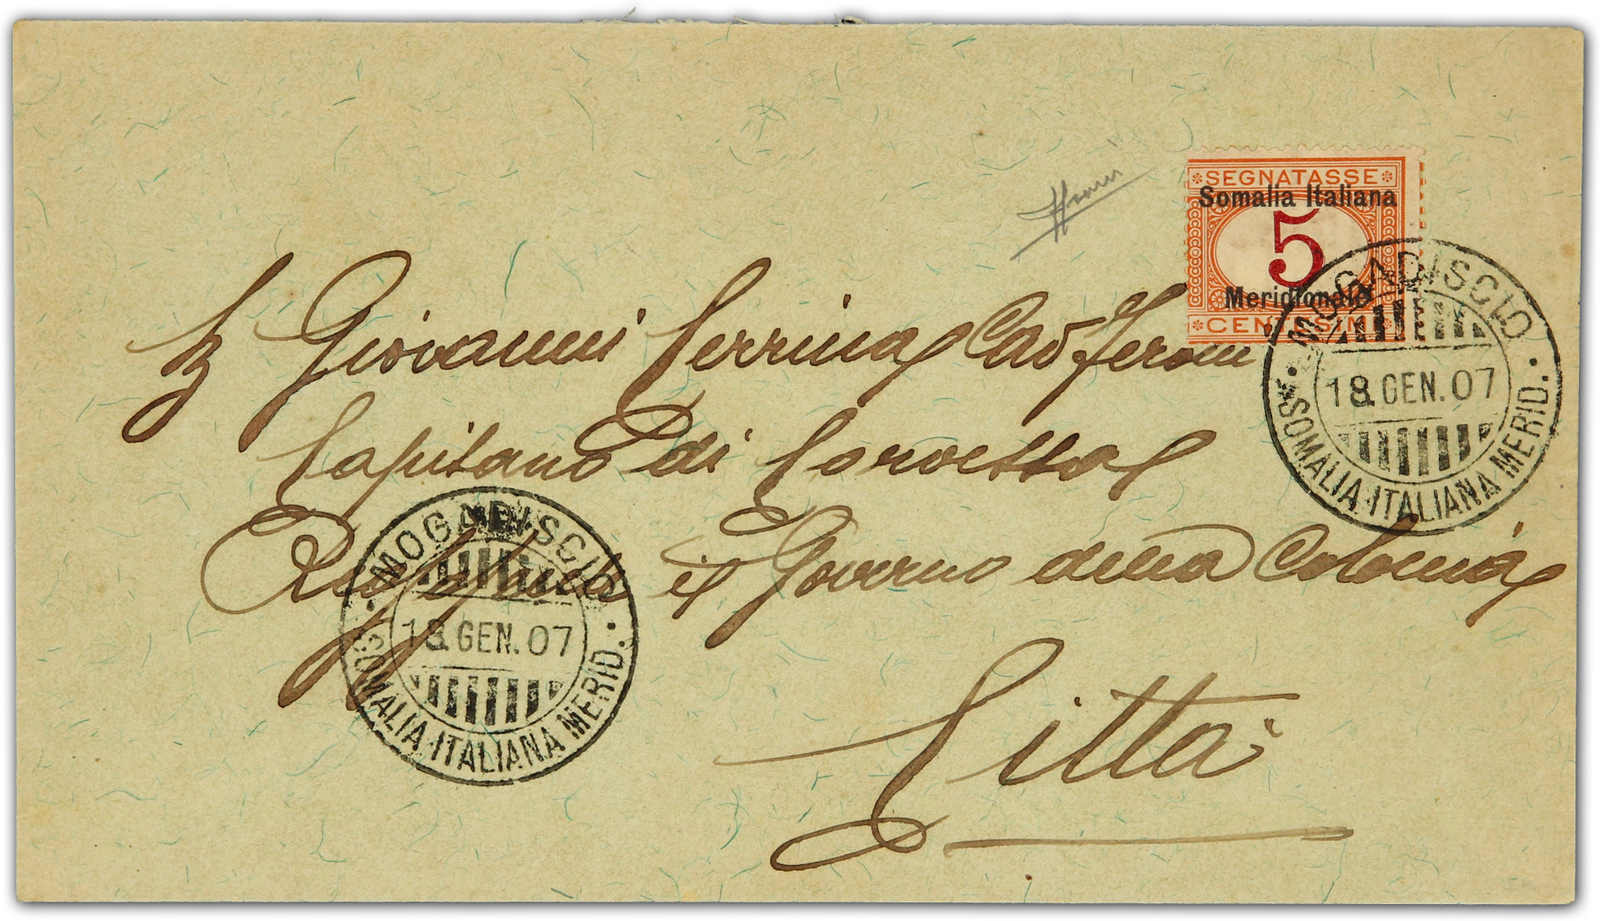 SEGNATASSE
Somalia Italiana
5
Meridionale
CENTESIMI
MOGADISCIO
18.GEN.07
SOMALIA ITALIANA MERID.
Giovanni Cerrina Cav Feroni
Capitano di Corvetta
Reggente il Governo della Colonia
MOGADISCIO
18.GEN.07
SOMALIA ITALIANA MERID.
Città